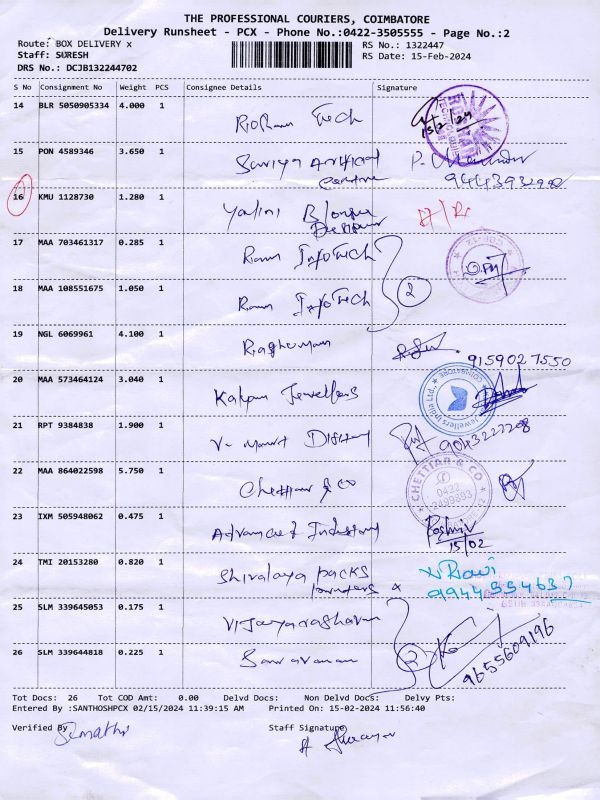 THE PROFESSIONAL COURIERS, COIMBATORE
Delivery Runsheet - PCX - Phone No.:0422-3505555 - Page No.:2
Route: BOX DELIVERY x
RS No.: 1322447
Staff: SURESH
RS Date: 15-Feb-2024
DRS No.: DCJB132244702
S No Consignment No Weight PCS Consignee Details Signature
14 BLR 5050905334 4.000 1 Tech
15/2/24
15 PON 4589346 3.650 1
9443932990
16 KMU 1128730 1.280 1 Yalini
17 MAA 703461317 0.285 1 Ram InfoTech
18 MAA 108551675 1.050 1 Ram InfoTech 2
19 NGL 6069961 4.100 1 Raghuram
9159027550
20 MAA 573464124 3.040 1 Kalyan Jewellers
Jewellers India Ltd., COIMBATORE
21 RPT 9384838 1.900 1 V-
9043227208
22 MAA 864022598 5.750 1 Chettiar & Co
CHETTIAR & CO
0422
23 IXM 505948062 0.475 1 Advanced Industry
15/02
24 TMI 20153280 0.820 1 Shivalaya packs
9944554637
25 SLM 339645053 0.175 1 Vijayaraghavan
26 SLM 339644818 0.225 1 Saravanan 2
9655609196
Tot Docs: 26 Tot COD Amt: 0.00 Delvd Docs: Non Delvd Docs: Delvy Pts:
Entered By :SANTHOSHPCX 02/15/2024 11:39:15 AM Printed On: 15-02-2024 11:56:40
Verified By
Staff Signature